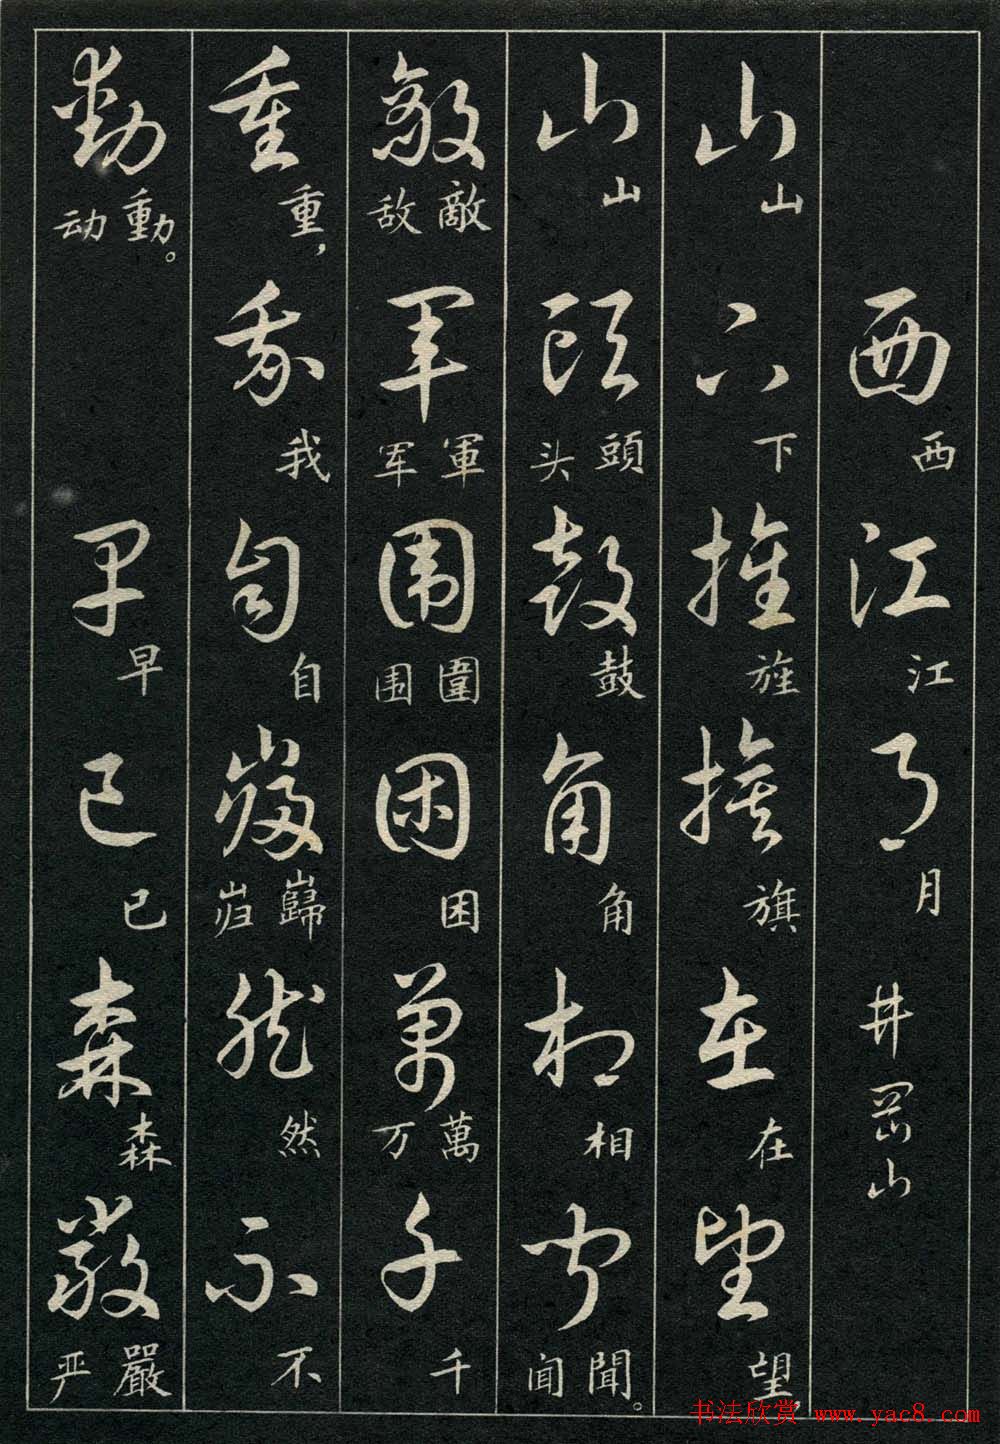 西江月 井岡山
西 江 月
山下旌旗在望
山 下 旌 旗 在 望,
山頭鼓角相聞
山 頭头 鼓 角 相 聞。闻
敵軍圍困萬千
敵敌 軍军 圍围 困 萬万 千
重我自巋然不
重, 我 自 巋岿 然 不
動早已森嚴
動。动 早 已 森 嚴严
书法欣赏 www.yac8.com